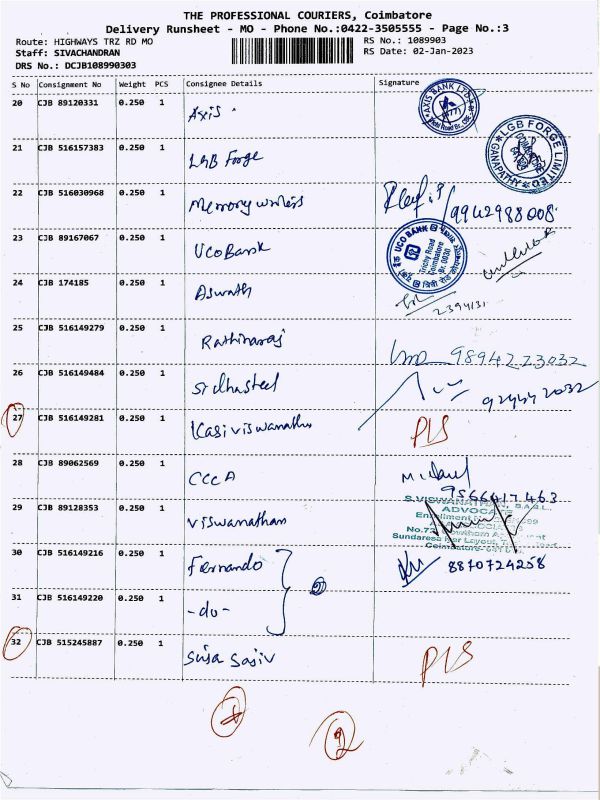 THE PROFESSIONAL COURIERS, Coimbatore
Delivery Runsheet - MO - Phone No.:0422-3505555 - Page No.:3
Route: HIGHWAYS TRZ RD MO RS No.: 1089903
Staff: SIVACHANDRAN RS Date: 02-Jan-2023
DRS No.: DCJB108990303
S No Consignment No Weight PCS Consignee Details Signature
20 CJB 89120331 0.250 1 Axis AXIS BANK LTD
21 CJB 516157383 0.250 1 LGB Forge LGB FORGE LIMITED GANAPATHY
22 CJB 516030968 0.250 1 Memory writers 9942988008
23 CJB 89167067 0.250 1 UCO Bank UCO BANK Trichy Road Coimbatore Br. 0030
24 CJB 174185 0.250 1 Aswath 2394131
25 CJB 516149279 0.250 1 Rathinaraj 9894223032
26 CJB 516149484 0.250 1 Sidhasteel
27 CJB 516149281 0.250 1 Kasiviswanathan PLS
28 CJB 89062569 0.250 1 CCCA 9566417463
29 CJB 89128353 0.250 1 Viswanathan ADVOCATE
30 CJB 516149216 0.250 1 Fernando 8870724258
31 CJB 516149220 0.250 1 -do-
32 CJB 515245887 0.250 1 PLS
2